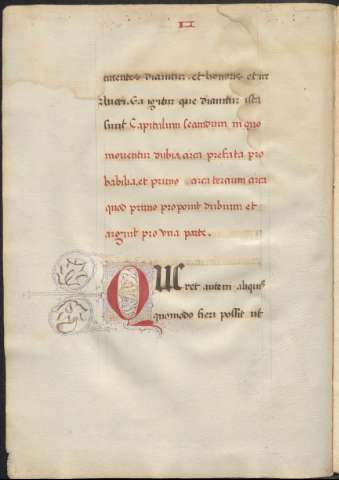 II
dicuntur . et honoris et ue
Ea igitur que dicuntur ista
sunt Capitulum secundum in quo
mouentur dubia circa prefata pro
babilia. et primo circa tercium circa
quod primo proponit dubium et
arguit pro una parte.
QUEret autem aliquis
quomodo fieri possit ut